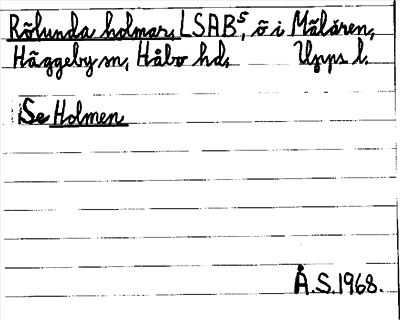 Rölunda holmar, LSABˢ, ö i Mälaren,
Häggeby sn, Håbo hd, Upps l.
Se Holmen
Å.S. 1968.